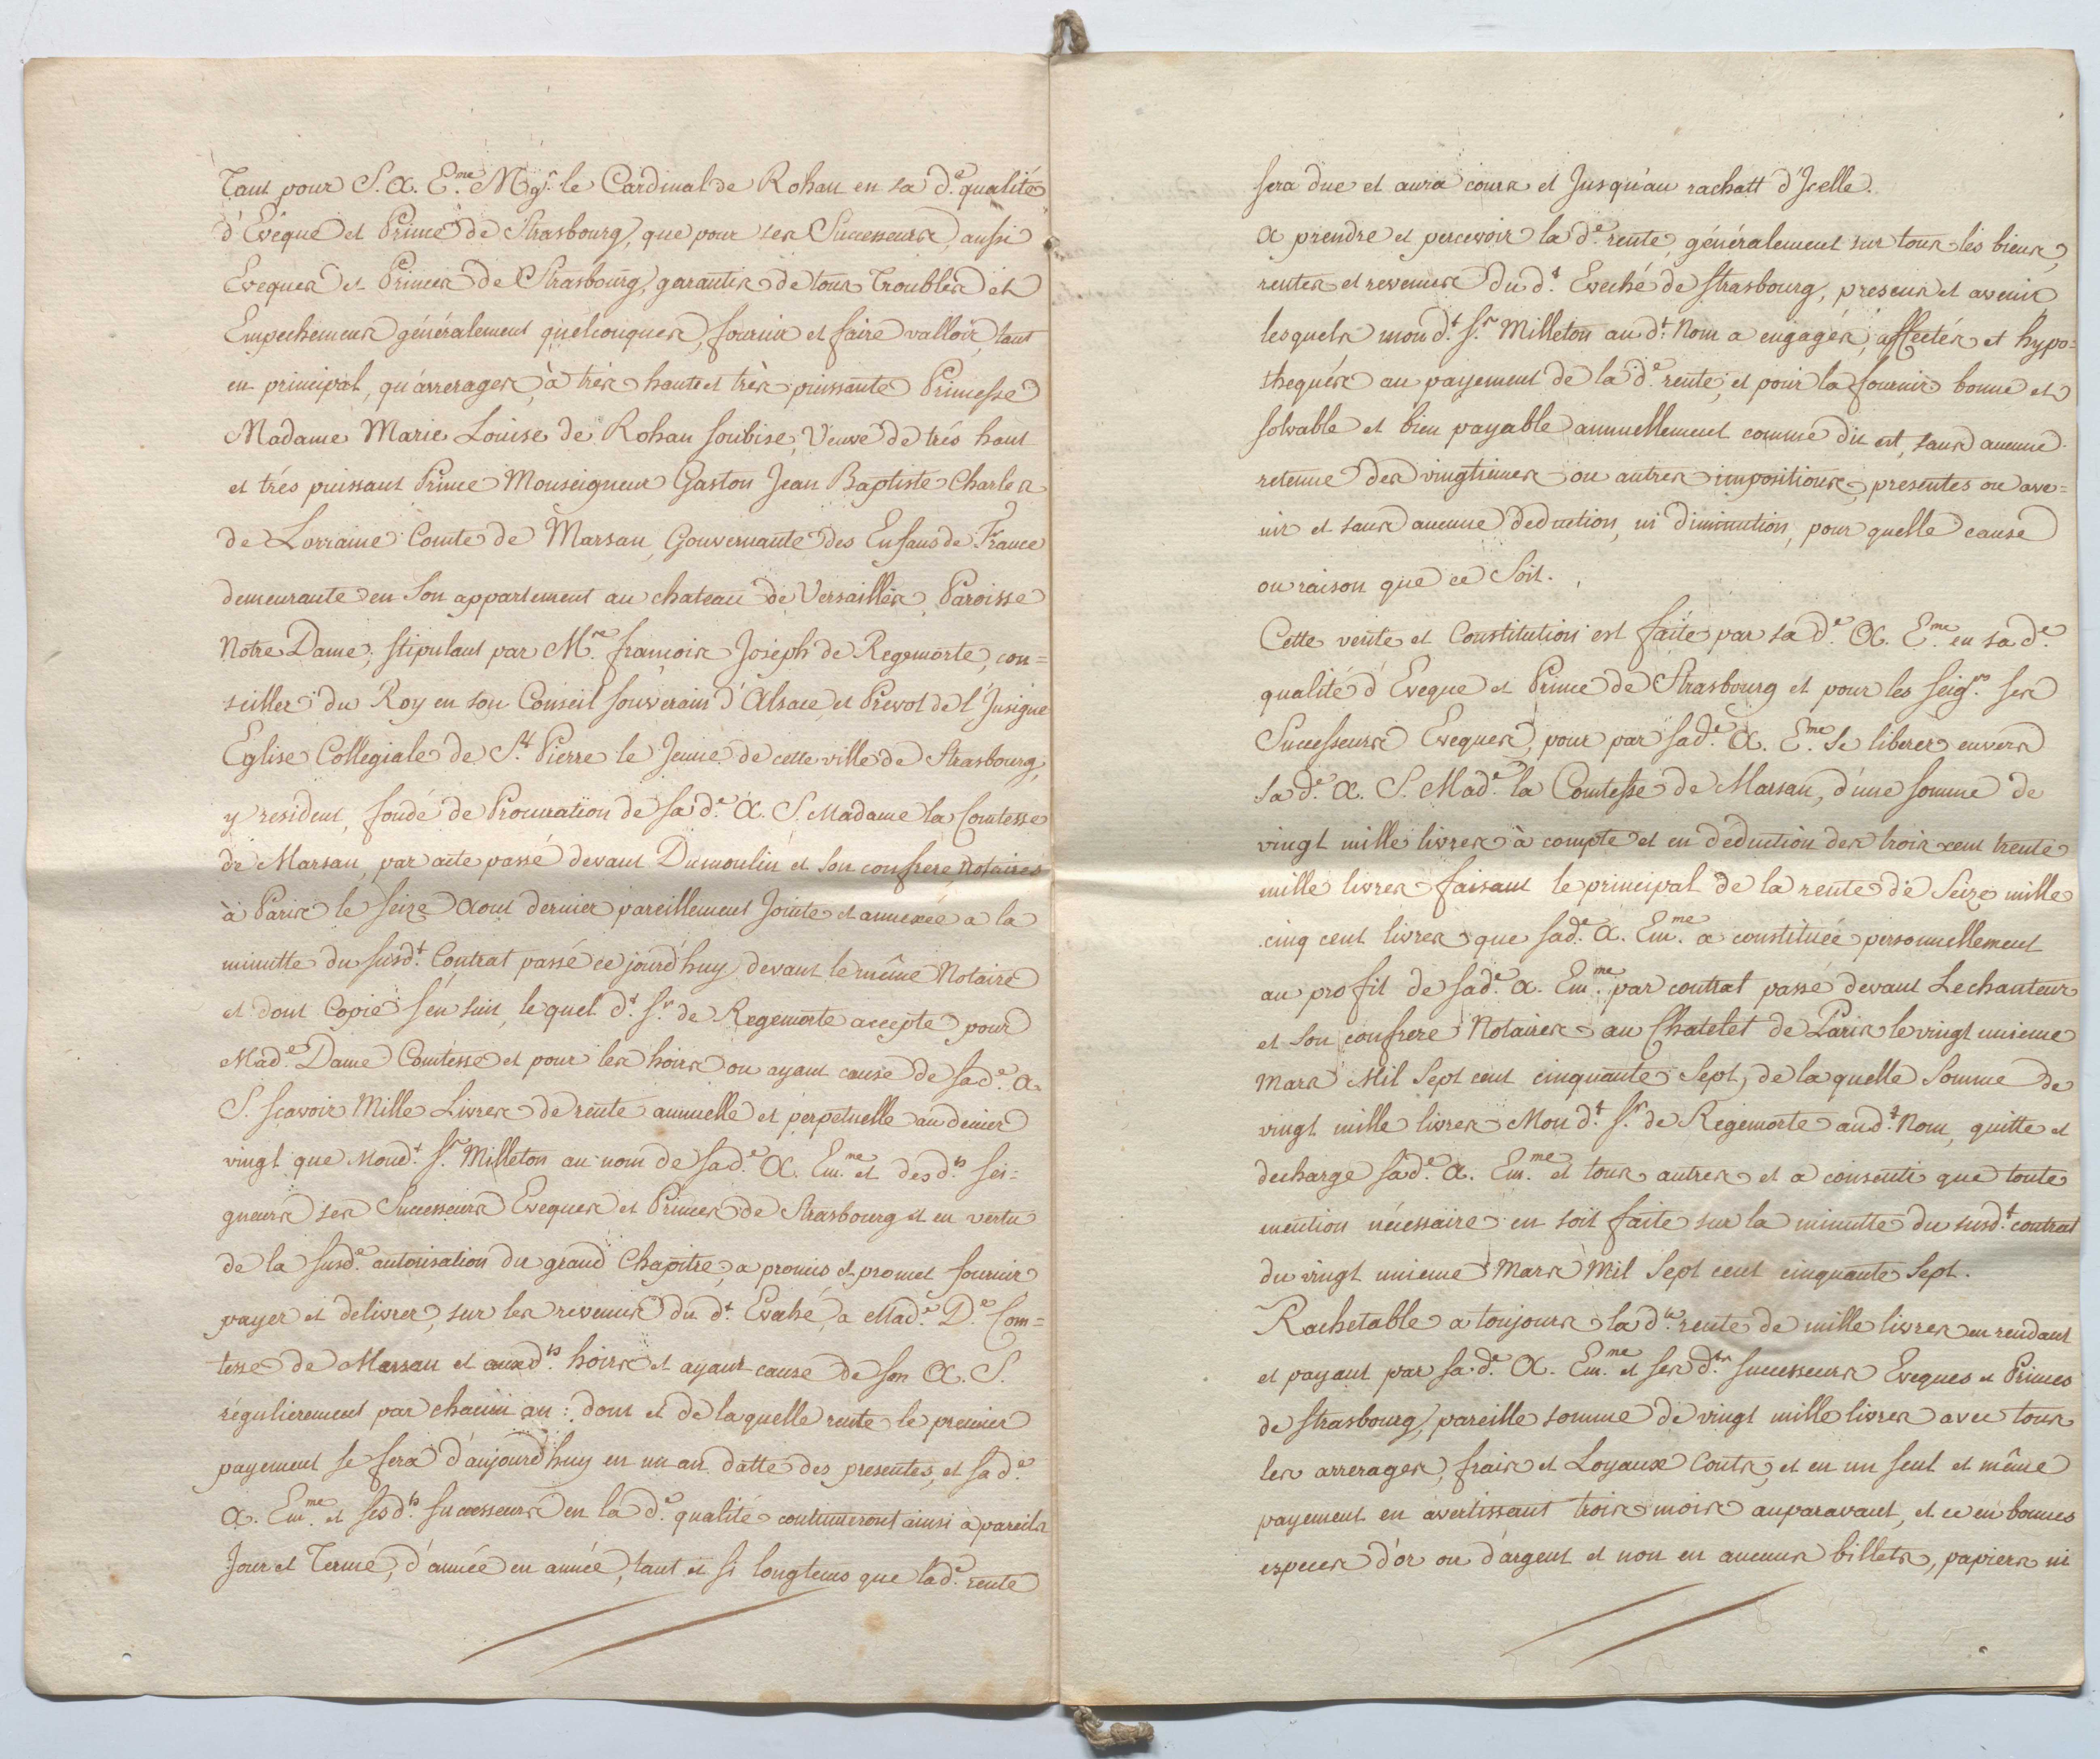 Tant pour S. A. E.me Mgr. le Cardinal de Rohan en sa d.e qualité
d'Evêque et Prince de Strasbourg, que pour ses Successeurs, aussi
Eveques et Princes de Strasbourg, garantir de tous Troubles et
Empechemens généralement quelconques, fournir et faire valloir, tant
en principal, qu'arrerages, à très haute et très puissante Princesse
Madame Marie Louise de Rohan Soubise, Veuve de trés haut
et trés puissant Prince Monseigneur Gaston Jean Baptiste Charles
de Lorraine Comte de Marsan, Gouvernante des Enfans de France
demeurante en Son appartement au chateau de Versailles, Paroisse
Notre Dame; stipulant par M.re francois Joseph de Regemorte, con=
seiller du Roy en son Conseil souverain d'Alsace, et Prevot de l'Insigne
Eglise Collegiale de S.t Pierre le Jeune de cette ville de Strasbourg,
y resident, fondé de Procuration de sa d.e A. S. Madame la Comtesse
de Marsan, par acte passé devant Dumoulin et Son confrere Notaires
à Paris le seize Aout dernier pareillement Jointe et annexée a la
minutte du susd.t Contrat passé ce jourd'huy devant le même Notaire
et dont Copie s'en suit, lequel d.t S.r de Regemorte accepte pour
Mad.e Dame Comtesse et pour les hoirs ou ayant cause de sad.e A.
S. scavoir Mille Livres de rente annuelle et perpetuelle au denier
vingt que Mond.t S.r Milleton au nom de sad.e A. Em.me et desd.ts sei=
gneurs ses Successeurs Eveques et Princes de Strasbourg et en vertu
de la susd.e autorisation du grand Chapitre, a promis et promet fournir
payer et delivrer, sur les revenus du d.t Evêché, a Mad.e D.e Com=
tesse de Marsan et auxd.ts hoirs et ayant cause de son A. S.
régulierement par chacun an: dont et de laquelle rente le premier
payement se fera d'aujourd'huy en un an datte des presentes, et sa d.e
A. Em.me et sesd.ts successeurs en la d.e qualité continueront ainsi à pareils
Jour et Terme, d'année en année, tant et si longtems que lad.e rente
sera due et aura cours et Jusqu'au rachatt d'Icelle.
A prendre et percevoir la d.e rente, généralement sur tous les biens,
rentes et revenus du d.t Eveché de Strasbourg, presens et avenir
lesquels mon d.t S.r Milleton au d.t Nom a engagés, affectés et hypo=
thequés au payement de la d.e rente, et pour la fournir bonne et
solvable et bien payable annuellement comme dit est, sans aucune
retenue des vingtiemes ou autres impositions, presentes ou ave=
nir et sans aucune deduction, ni diminution, pour quelle cause
ou raison que ce Soit.
Cette vente et Constitution est faite par sa d.e A. E.me en sa d.e
qualité d'Eveque et Prince de Strasbourg et pour les seig.rs ses
Successeurs Eveques, pour par sad.e A. E.me Se liberer envers
sa d.e A. S. Mad.e la Comtesse de Marsan, d'une somme de
vingt mille livres à compte et en deduction des trois cent trente
mille livres faisant le principal de la rente de Seize mille
cinq cent livres que sad.e A. Em.me a constituée personnellement
au profit de sad.e A. Em.me par contrat passé devant Lechanteur
et Son confrere Notaires au Chatelet de Paris le vingt unieme
Mars Mil Sept cent cinquante Sept, de laquelle Somme de
vingt mille livres Mon d.t S.r de Regemorte aud.t Nom, quitte et
decharge sad.e A. Em.me et tous autres et a consenti que toute
mention nécessaire en soit faite sur la minutte du susd.t contrat
du vingt unieme Mars Mil Sept cent cinquante Sept.
Rachetable a toujours la d.te rente de mille livres en rendant
et payant par sa d.e A. Em.me et ses d.ts successeurs Eveques et Princes
de Strasbourg, pareille somme de vingt mille livres avec tous
les arrerages, frais et Loyaux Couts, et en un seul et même
payement en avertissant trois mois auparavant, et ce en bonnes
especes d'or ou d'argent et non en aucuns billets, papiers ni